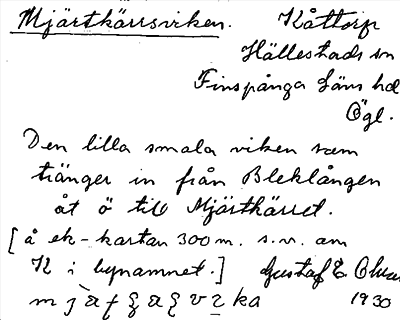 Mjärtkärrsviken. Kåttorp
Hällestads sn
Finspånga läns hd
Ögl.
Den lilla smala viken som
tränger in från Bleklången
åt ö till Mjärtkärret.
[å ek-kartan 300 m. s.v. om
K i bynamnet.] Gustaf E.
1930